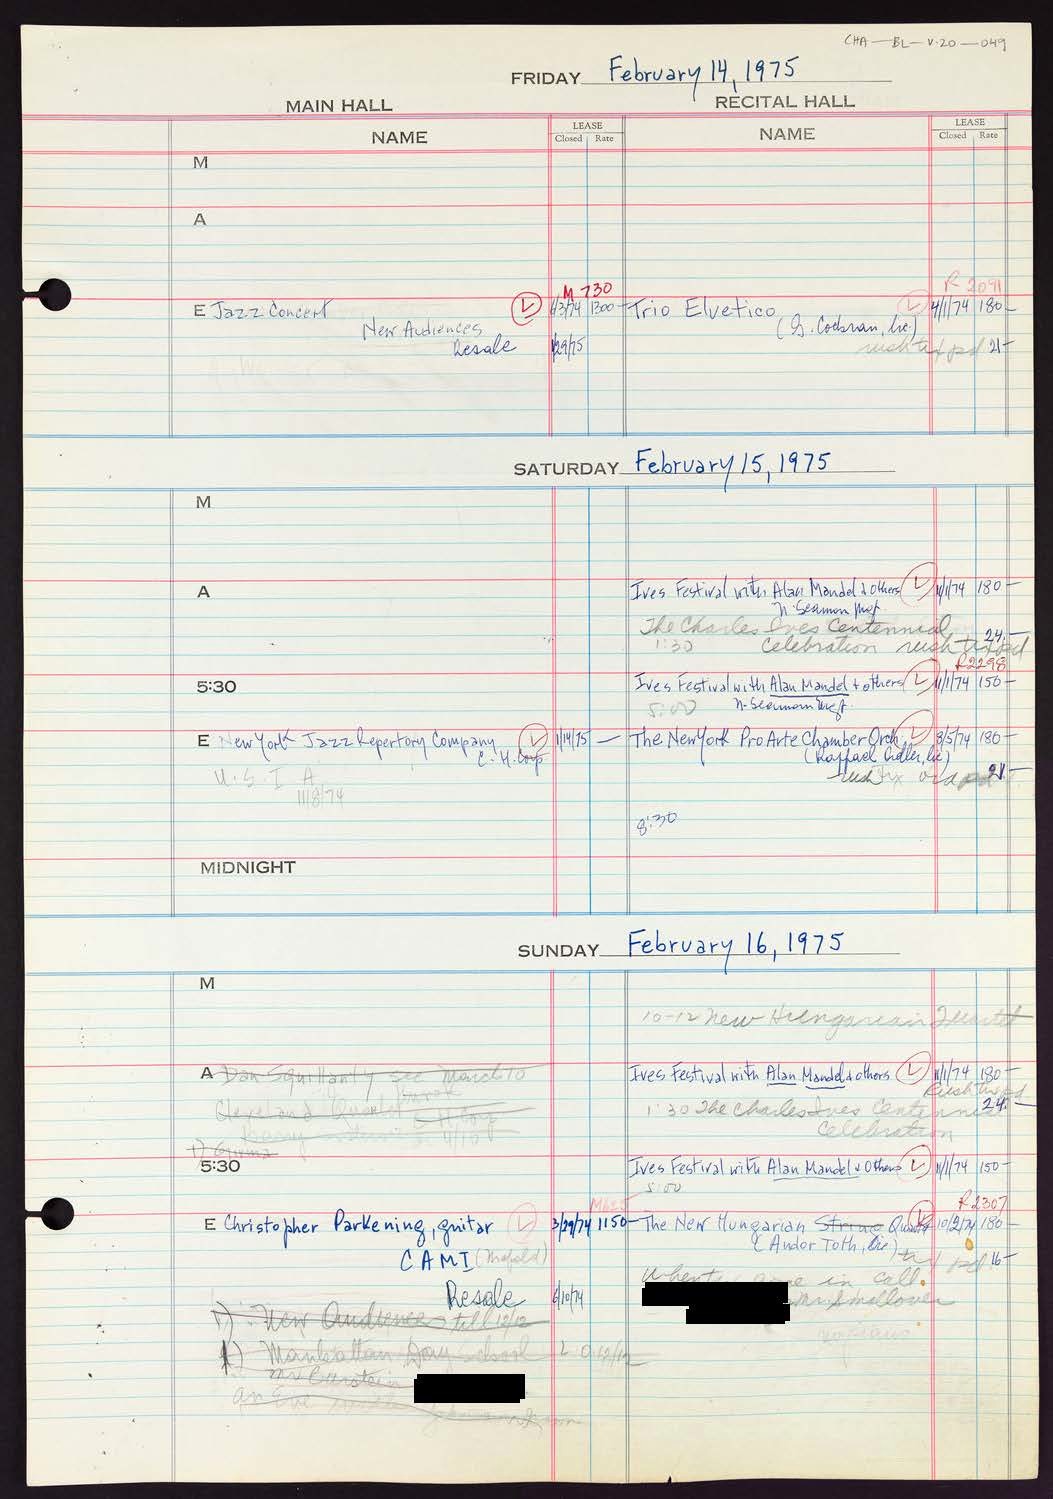 CHA-BL-V.20-049
FRIDAY February 14, 1975
MAIN HALL RECITAL HALL
NAME LEASE Closed Rate NAME LEASE Closed Rate
M
A
M 730 R 2091
E Jazz Concert 1300- Trio Elvetico 4/1/74 180-
New Audiences (G. Cochran, lic.)
Resale 1/29/75 rush tix pd 21-
SATURDAY February 15, 1975
M
A Ives Festival with Alan Mandel & Others 11/1/74 180-
N. Seaman Mgt.
The Charles Ives Centennial 24.-
1:30 Celebration rush tix pd
R2298
5:30 Ives Festival with Alan Mandel & others 11/1/74 150-
5:00 N. Seaman Mgt.
E New York Jazz Repertory Company 1/14/75 - The New York Pro Arte Chamber Orch. 8/5/74 180-
C.H. Corp (Raffael Adler, lic)
U.S.I.A. rush tix pd 21.
11/8/74
8:30
MIDNIGHT
SUNDAY February 16, 1975
M
10-12 New Hungarian Quartet
A Dan Squillanty see March 10 Ives Festival with Alan Mandel & others 11/1/74 180-
Rush tix pd
Cleveland Quartet C H Corp 1:30 The Charles Ives Centennial 24.-
4/10 Celebration
5:30 Ives Festival with Alan Mandel & Others 11/1/74 150-
5:00
M625 R2307
E Christopher Parkening, guitar 3/29/74 1150- The New Hungarian String Quartet 10/2/74 180-
CAMI (Andor Toth, lic) pd 16-
in call
Resale 6/10/74
New Audience till 12/12
Manhattan Day School
an Eve with